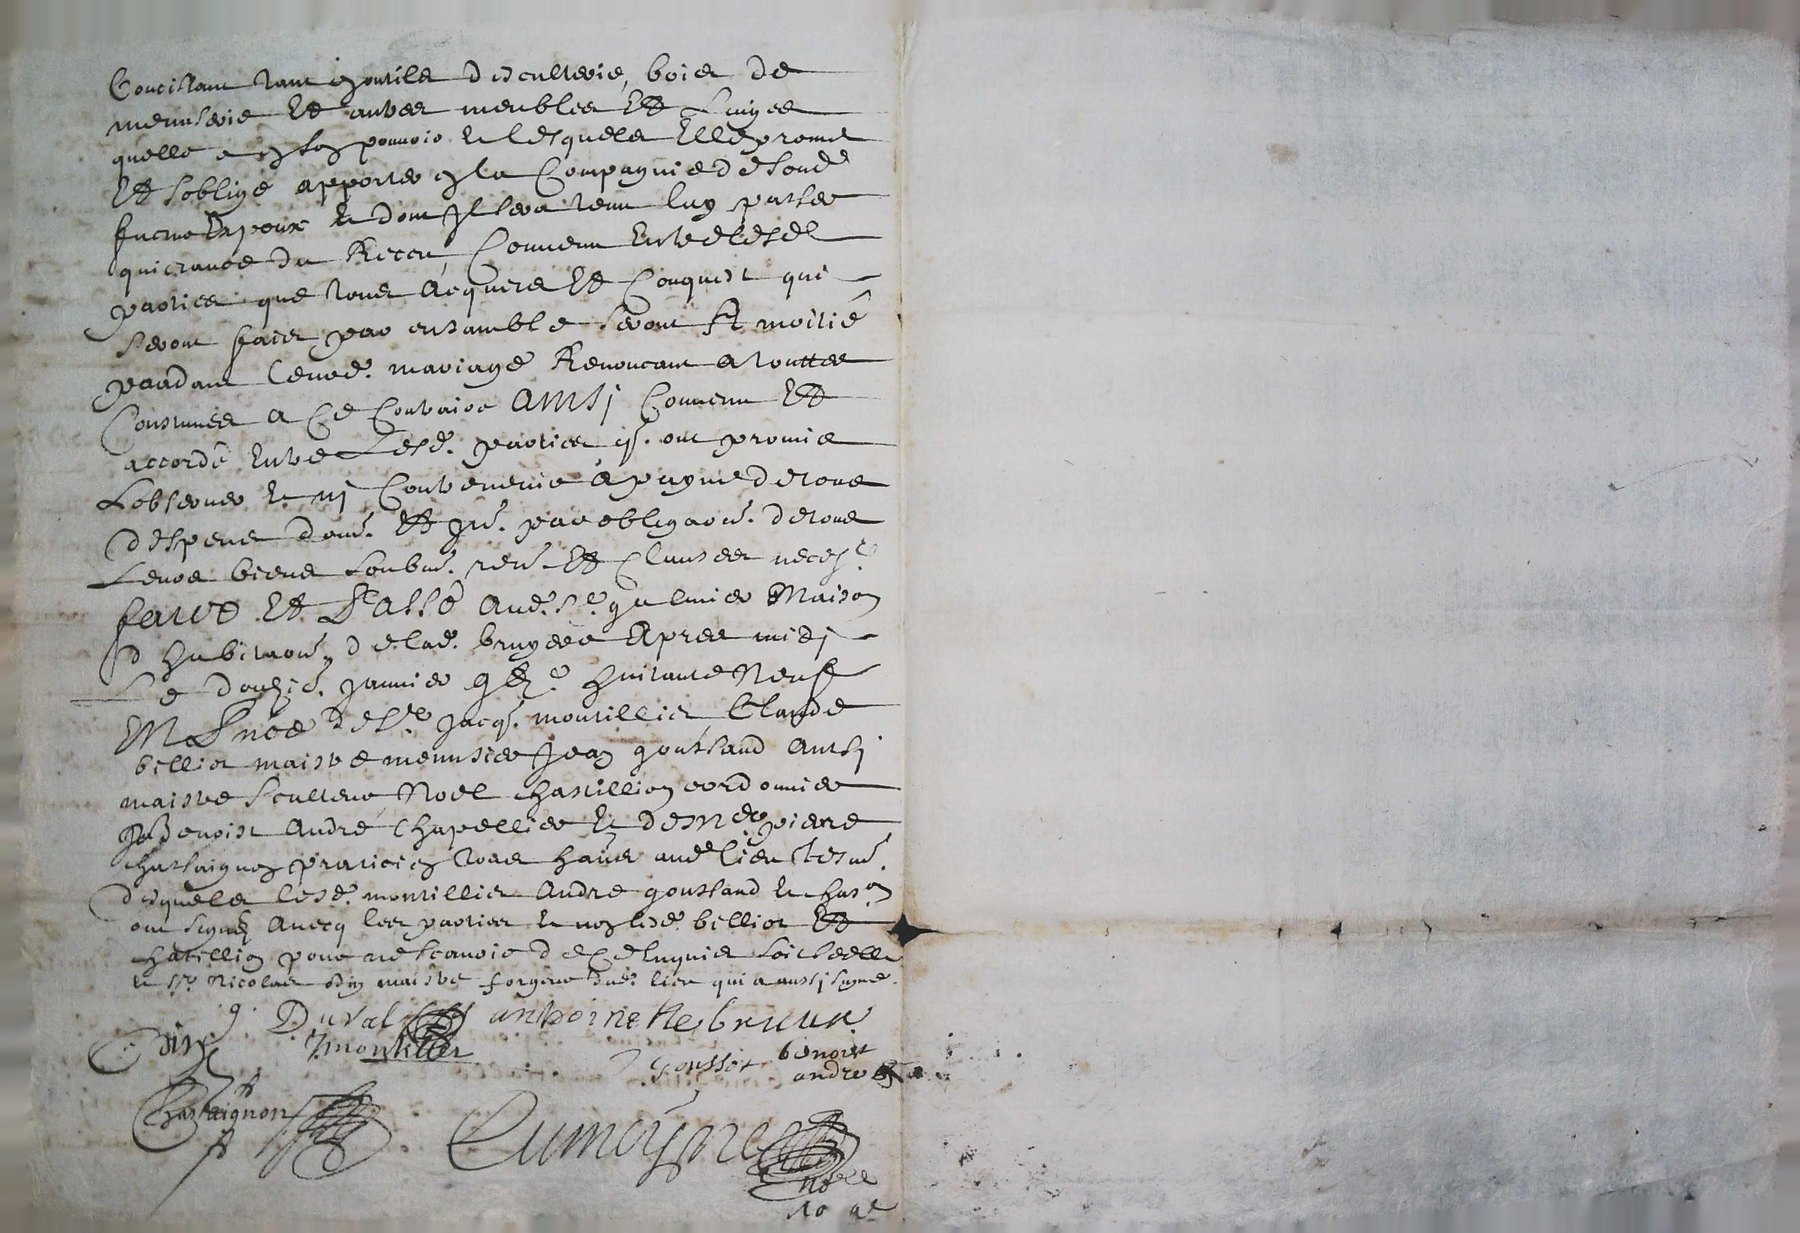 Concistant tant en outils d'esculterie, bois de
menuserie Et autres meubles Et Linges
quelle a en son pouvoir & lesquels Elle promet
Et soblige apporter en la Compagnie de soud
futur Espoux & dont Il sera tenu luy passer
quictance du Receu, Convenu Entre lesd
parties que tous Acquets Et Conquest qui
seront faits par ensamble seront A moitié
pandant leurd. mariage Renoncant a touttes
Coustumes a Ce Contraire Ainsi Convenu Et
accordé Entre Lesd. parties qs. ont promis
Lobserver & ni Contrevenir a payne de tous
despens dom. Et Int. par obligaon. de tous
Leurs biens soubm. ren. Et Clauses necess.
faict Et Passé Aud. St. galmier Maison
d'habitaon. de lad. bruyere Apres midi
Le douzie. janvier Huitante Neuf
En Pnce de Sr. jacqs. montillier Claude
billiot maistre menusier jean goussand Aussi
maistre sculteur Noel chastillion cordonnier
benoist André Chapellier & de Me pierre
chassaignon praticien tous hants aud lieu tesm.
desquels lesd. montillier Andre goussand & chas.on
ont signéz Avecq les parties & non lesd. billiot Et
chatillion pour ne scavoir de Ce Enquis
& Sr. Nicolas din maistre forgeur dud. lieu qui a aussi signé.
Duval antoinette bruiere
din J montillier
goussot benoist
andre
Chassaignon
Dumoynes
nore